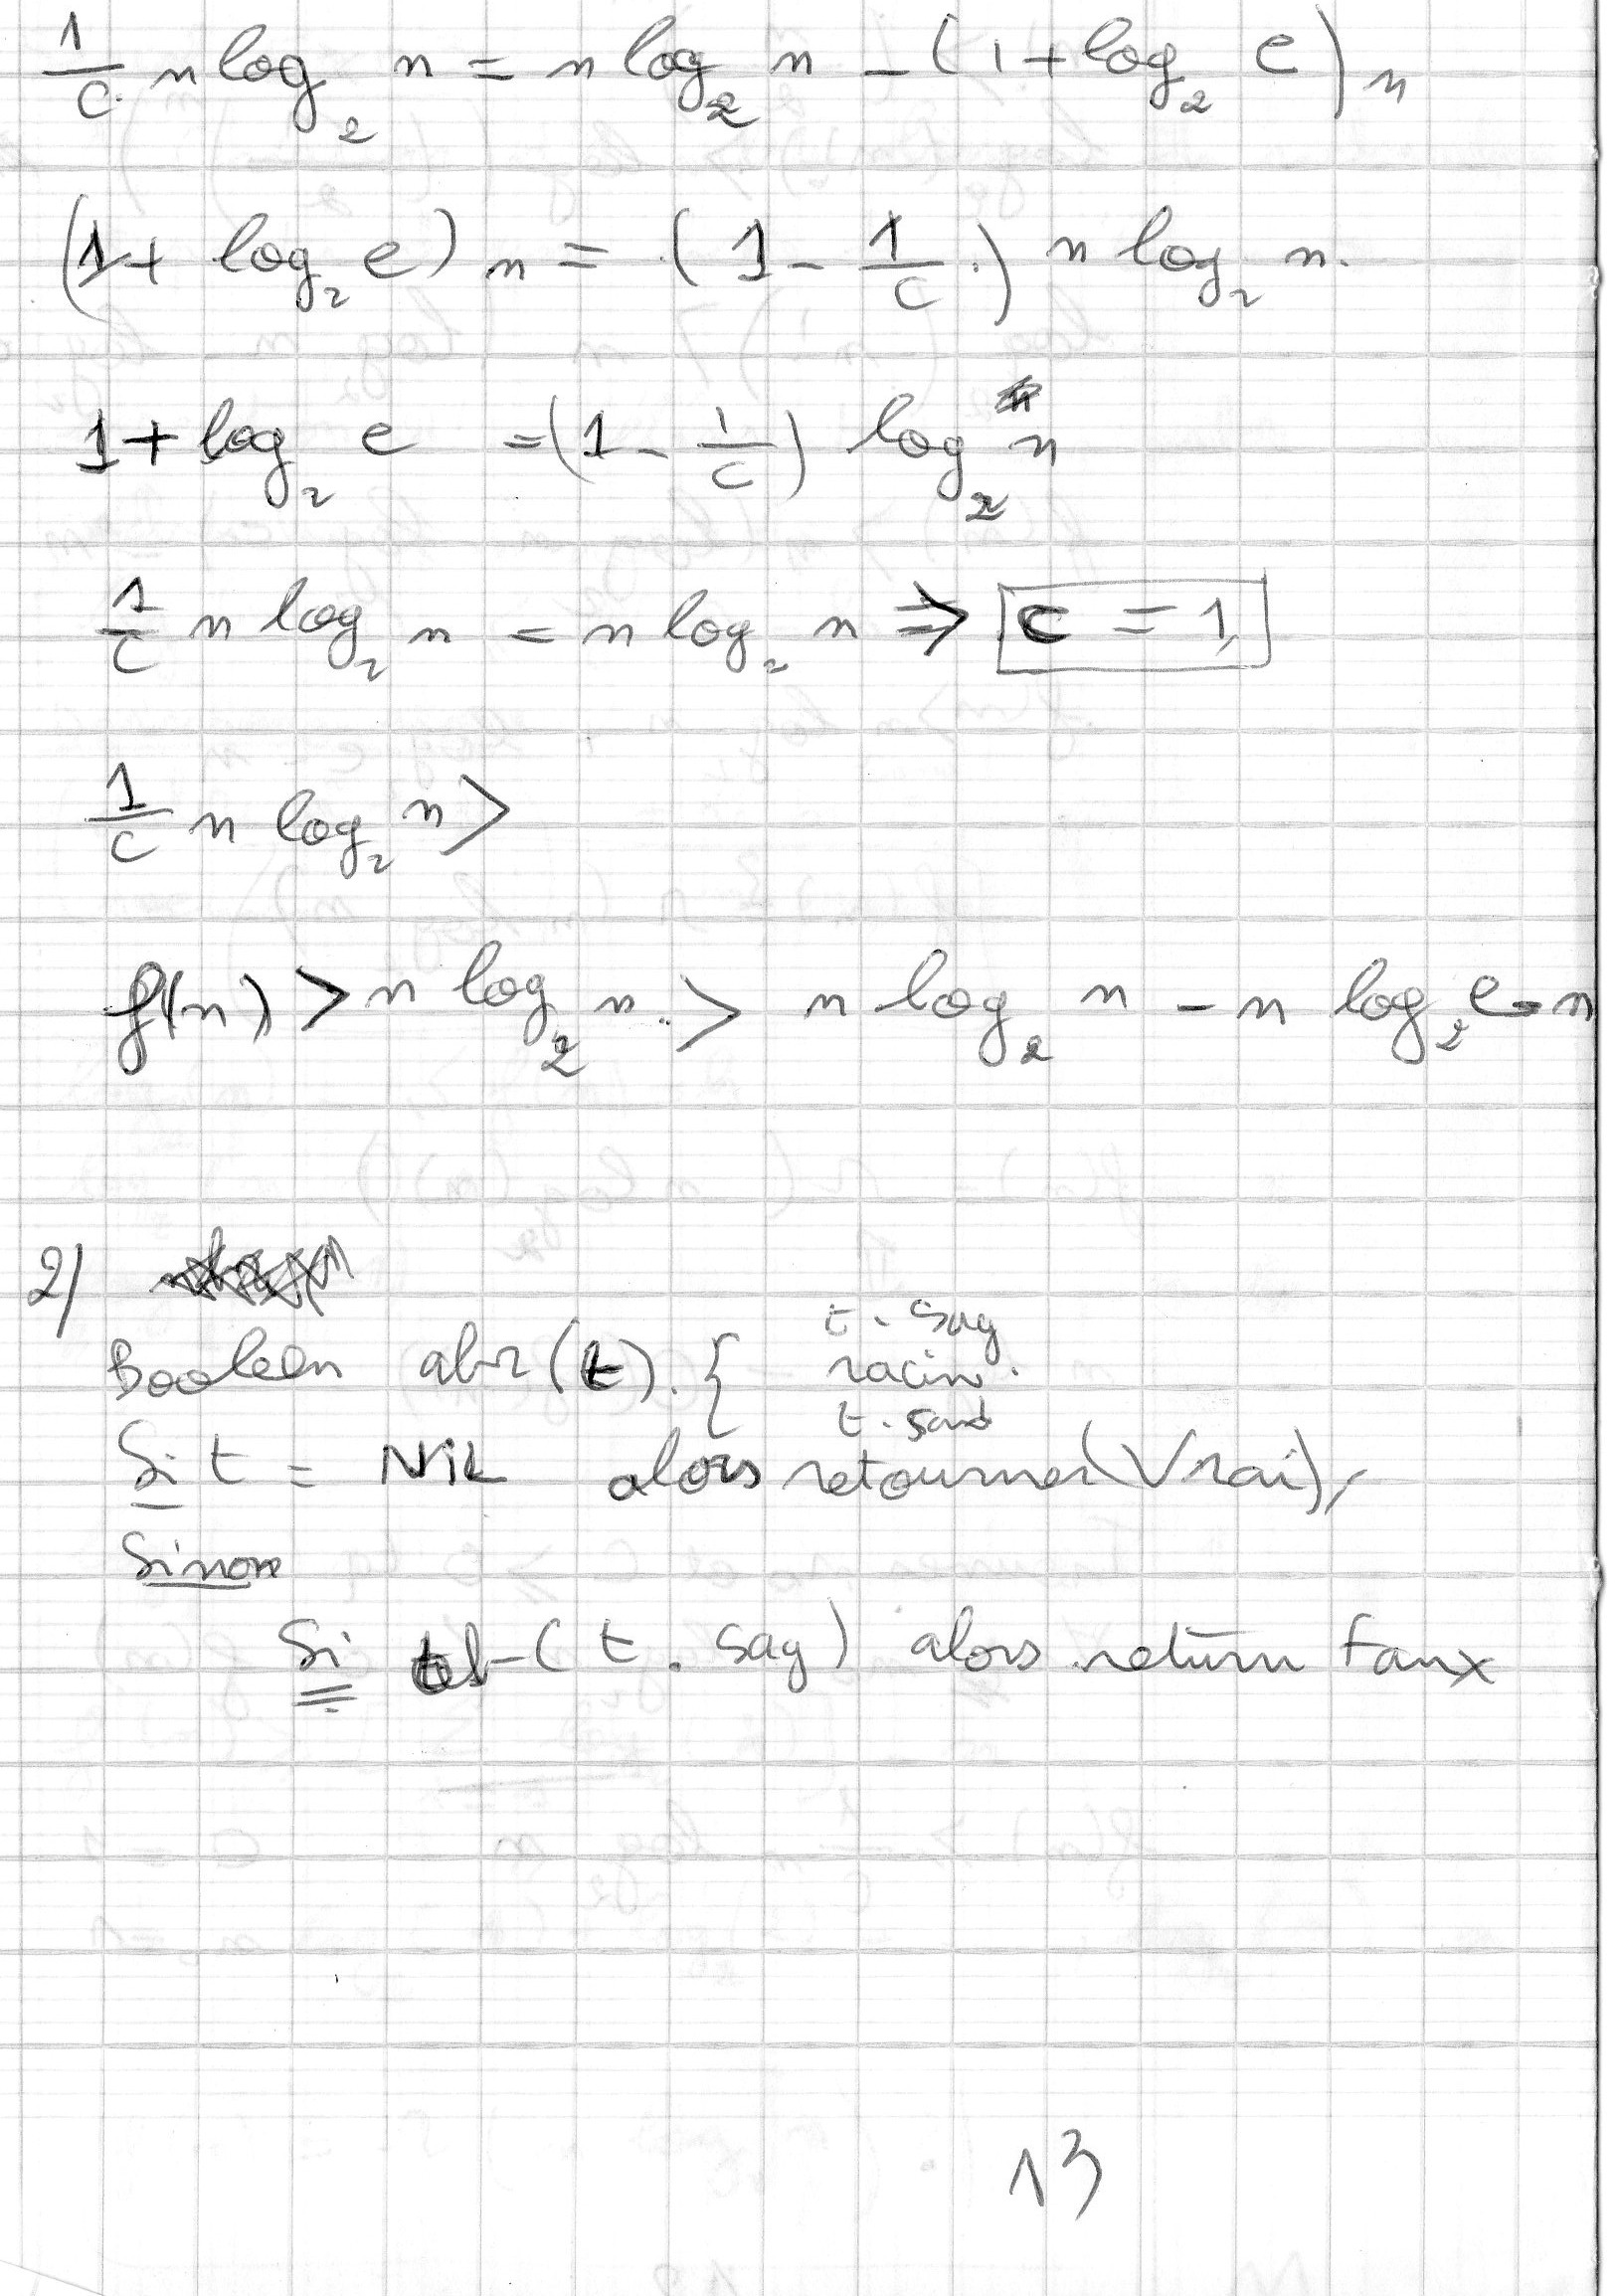 1/c n log₂ n = n log₂ n - (1 + log₂ e) n
(1 + log₂ e) n = (1 - 1/c) n log₂ n.
1 + log₂ e = (1 - 1/c) log₂ n
1/c n log₂ n = n log₂ n ⇒ c = 1
1/c n log₂ n >
f(n) > n log₂ n > n log₂ n - n log₂ e - n
2)
t. sag
Booleen abr (t). { racin.
t. sad
Si t = Nil alors retourner (Vrai);
Sinon
Si (t. sag) alors return Faux
13